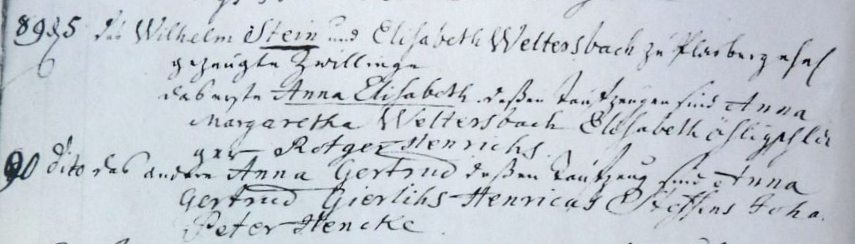 89 d 5 des Wilhelm Stein und Elisabeth Weltersbach zu Plasberg ehel
gezeugte Zwillinge
das erste Anna Elisabeth deßen Taufzeugen sind Anna
Margaretha Weltersbach Elisabeth
ger Rötger Henrichs
90 dito das andere Anna Gertrud deßen Taufzeug sind Anna
Gertrud Gierlihs Henricus Steffens Joha.
Peter Hencke.